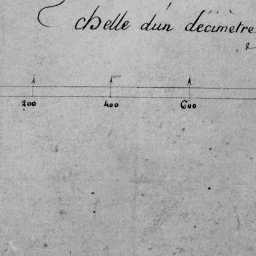 chelle d'un décimètre
200 400 600